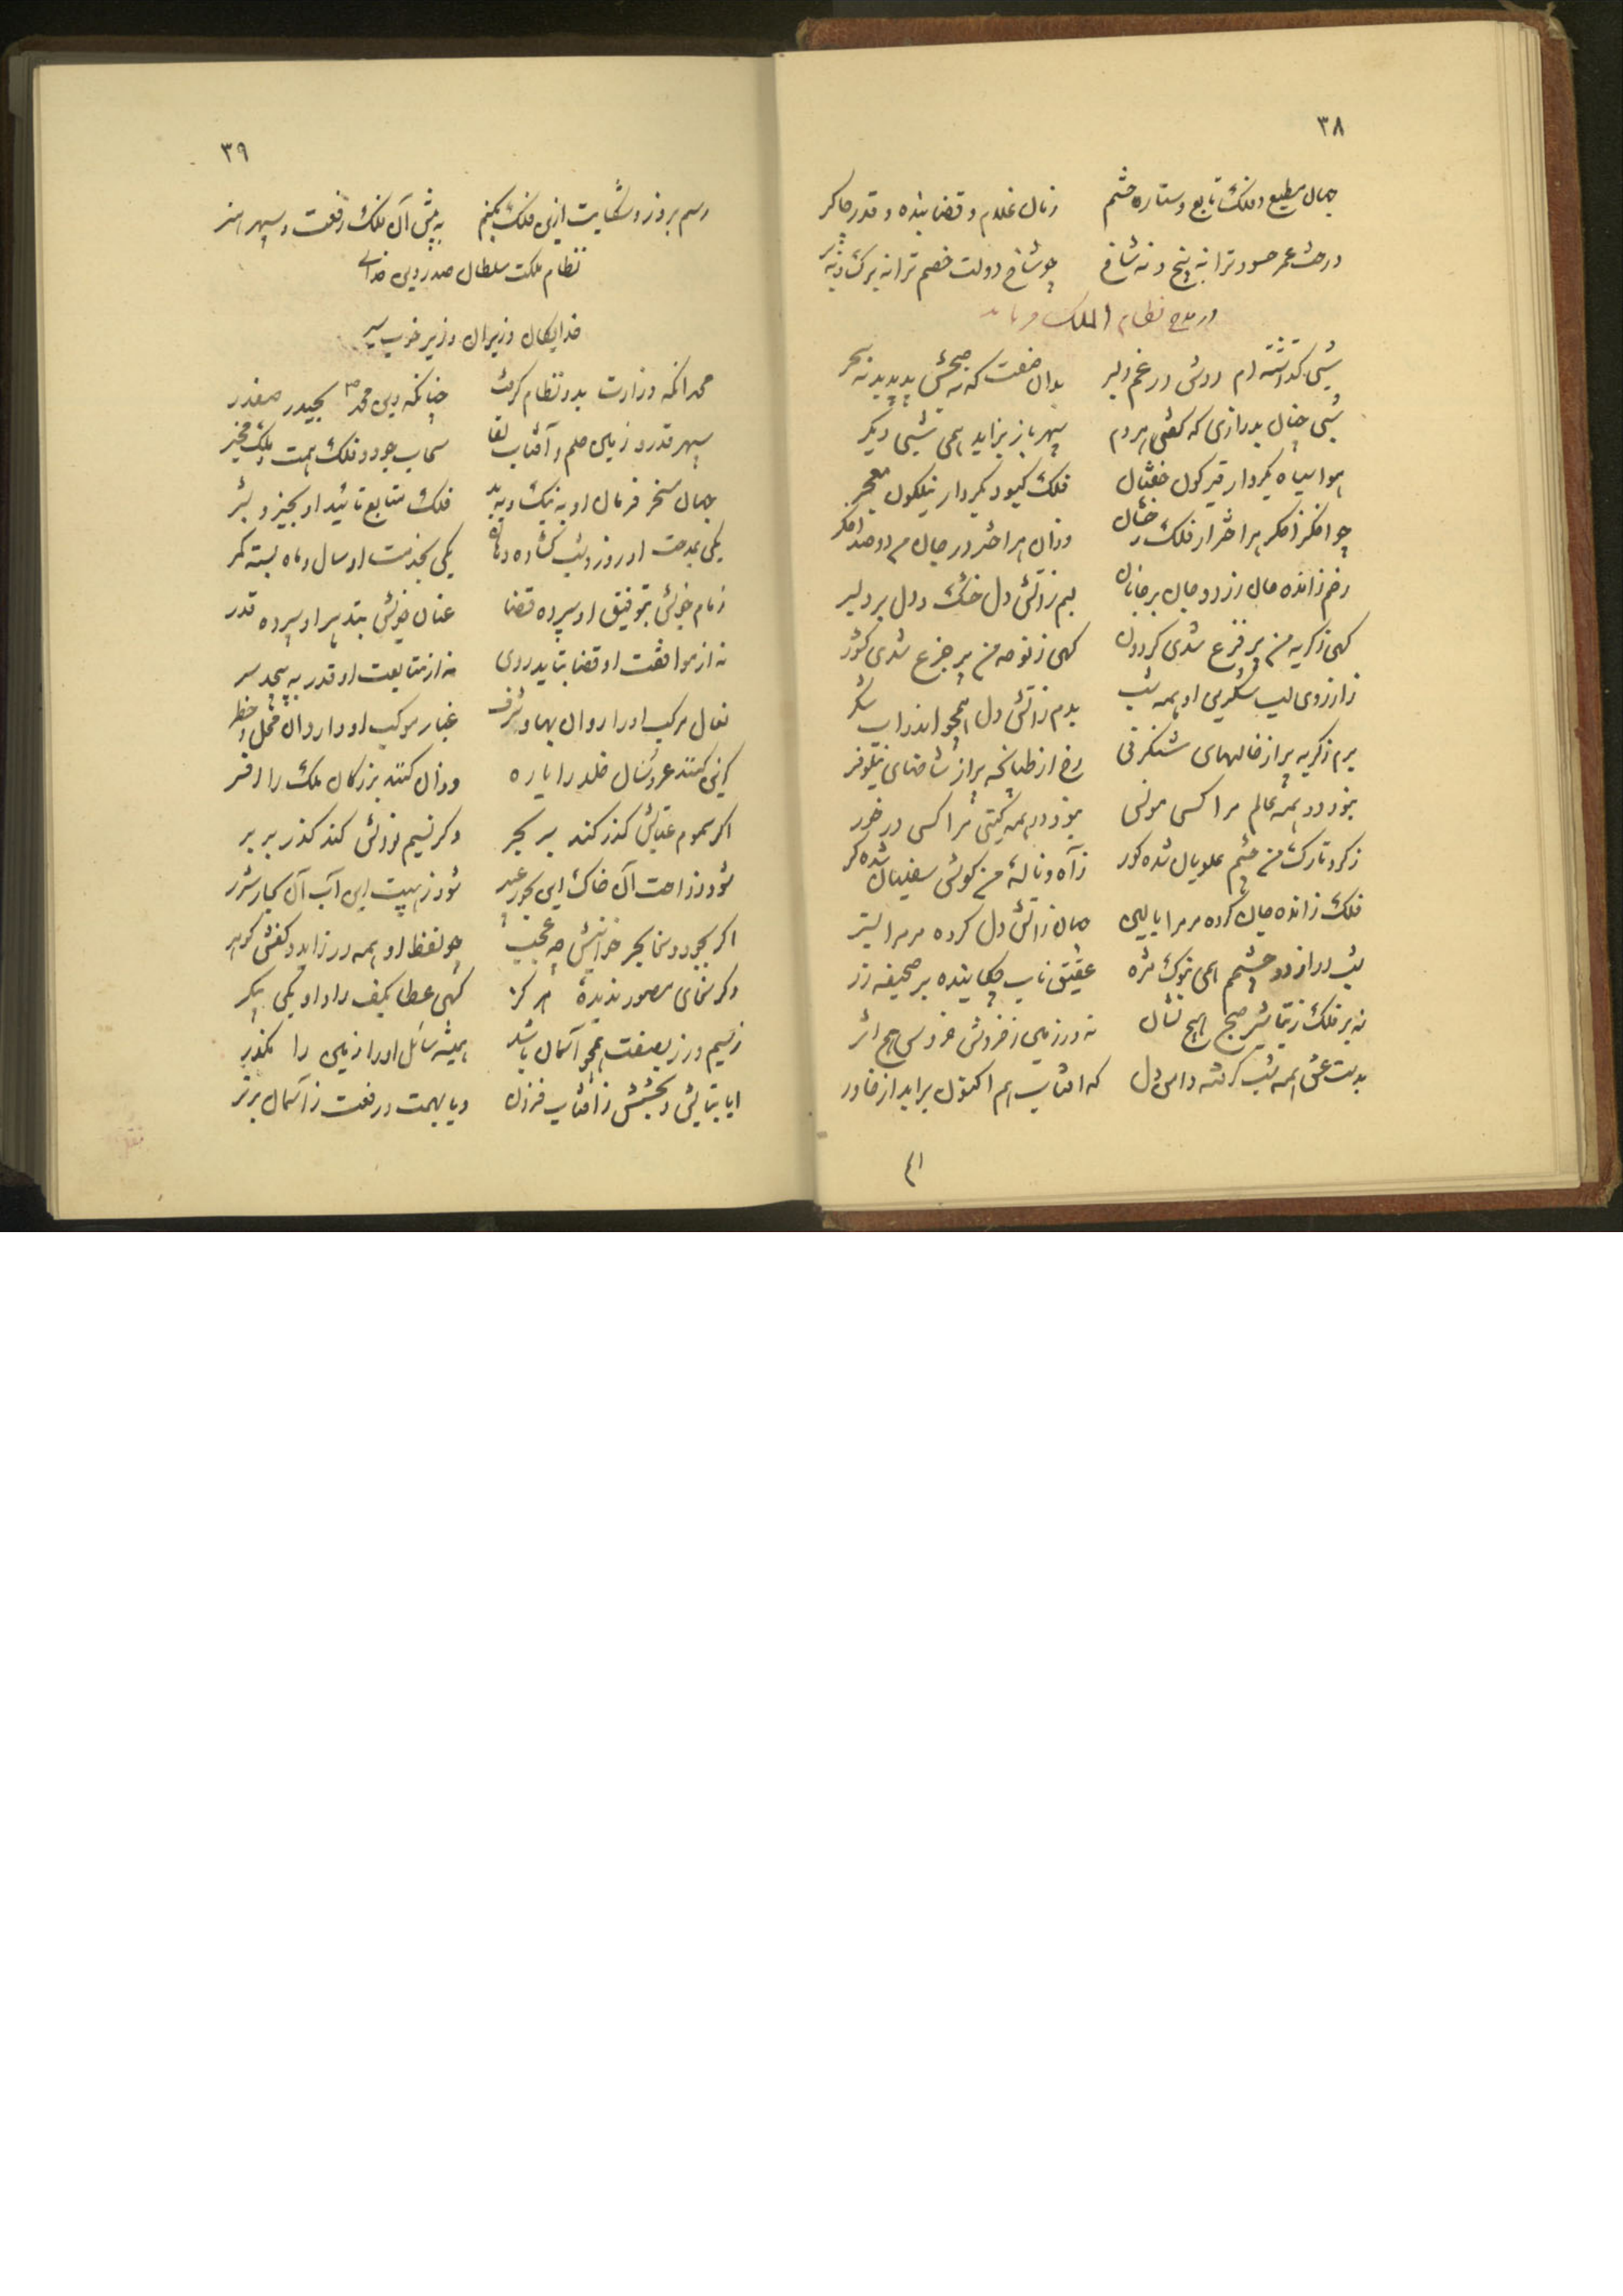 ۳۸
جهان مطیع و فلک تابع و ستاره حشم زمان غلام و قضا بنده و قدر چاکر
درخت عمر حسود ترا نه بیخ و نه شاخ چو شاخ دولت خصم ترا نه برک و نه بر
در مدح نظام الملک فرماید
شبی گذاشته ام دوش در غم دلبر بدان صفت که نه صبحش پدید بد نه سحر
شبی چنان بدرازی که گفتی هر دم سپهر باز بزاید همی شبی دیگر
هوا سیاه بکردار قیرگون خفتان فلک کبود بکردار نیلگون مغفر
چو اخگر اخگر هر اختر از فلک رخشان وزان هر اختر در جان من دو صد اخگر
رخم ز انده جان زرد و جان بر جانان لبم ز آتش دل خشک و دل بر دلبر
گهی ز گریه من پر فزع شدی گردون گهی ز نوحه من پر جزع شدی کشور
ز آرزوی لب شکرین او همه شب بدم ز آتش دل همچو اندر آب شکر
برم ز گریه پر از خالهای شنگرفی رخ از طپانچه پر از شاخهای نیلوفر
نبود در همه عالم مرا کسی مونس نبود در همه گیتی مرا کسی در خور
ز گرد تارک من چشم علویان شده کور ز آه و ناله من گوش سفلیان شده کر
فلک ز انده جان کرده مر مرا بالین جهان ز آتش دل کرده مر مرا بستر
شب دراز دو چشمم همی بنوک مژه عقیق ناب چکانیده بر صحیفه زر
نه بر فلک ز تباشیر صبح هیچ نشان نه در زمین ز خروش خروس هیچ اثر
بدست عشق همه شب گرفته دامن دل که آفتاب هم اکنون برآید از خاور
۴۱
۳۹
رسم بروز و شکایت ازین فلک بکنم به پیش آن فلک رفعت و سپهر هنر
نظام ملکت سلطان صدر دین خدای
خدایگان وزیران وزیر خوب سیر
محمد آنکه وزارت بدو نظام گرفت چنانکه دین محمد بحیدر صفدر
سپهر قدر و زمین حلم و آفتاب لقا سحاب جود و فلک همت و ملک مخبر
جهان مسخر فرمان او به نیک و به بد فلک متابع تائید او بخیر و بشر
یکی بمدحت او روز و شب گشاده دهان یکی بخدمت او سال و ماه بسته کمر
زمام خویش بتوفیق او سپرده قضا عنان خویش بتدبیر او سپرده قدر
نه از موافقت او قضا بتابد روی نه از متابعت او قدر به پیچد سر
نعال مرکب او را روان بها و شرف غبار موکب او را روان محل و خطر
کزین کنند عروسان خلد را یاره وزان کنند بزرگان ملک را افسر
اگر سموم عتابش گذر کند سر بحر وگر نسیم نوازش کند گذر بر بر
شود ز راحت آن خاک این بخور عبیر شود ز هیبت این آب آن بخار شرر
اگر بجود و سخا بحر خوانیش چه عجب چو لفظ او همه در زاید و کفش گوهر
وگر سخای مصور ندیدهٔ هرگز گهی عطا بکف راد او یکی بنگر
ز سیم و زر بصفت همچو آسمان باشد همیشه سائل او را زمین راهگذر
ایا بتابش و بخشش ز آفتاب فزون و یا بهمت و رفعت ز آسمان برتر